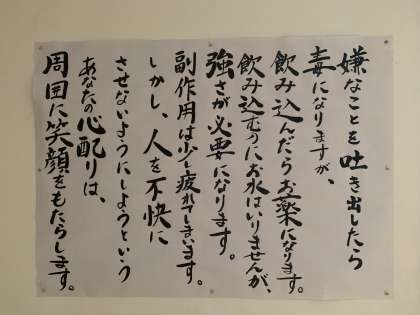 嫌なことを吐き出したら
毒になりますが、
飲み込んだらお薬になります。
飲み込むのにお水はいりませんが、
強さが必要になります。
副作用は少し疲れてしまいます。
しかし、人を不快に
させないようにしようという
あなたの心配りは、
周囲に笑顔をもたらします。